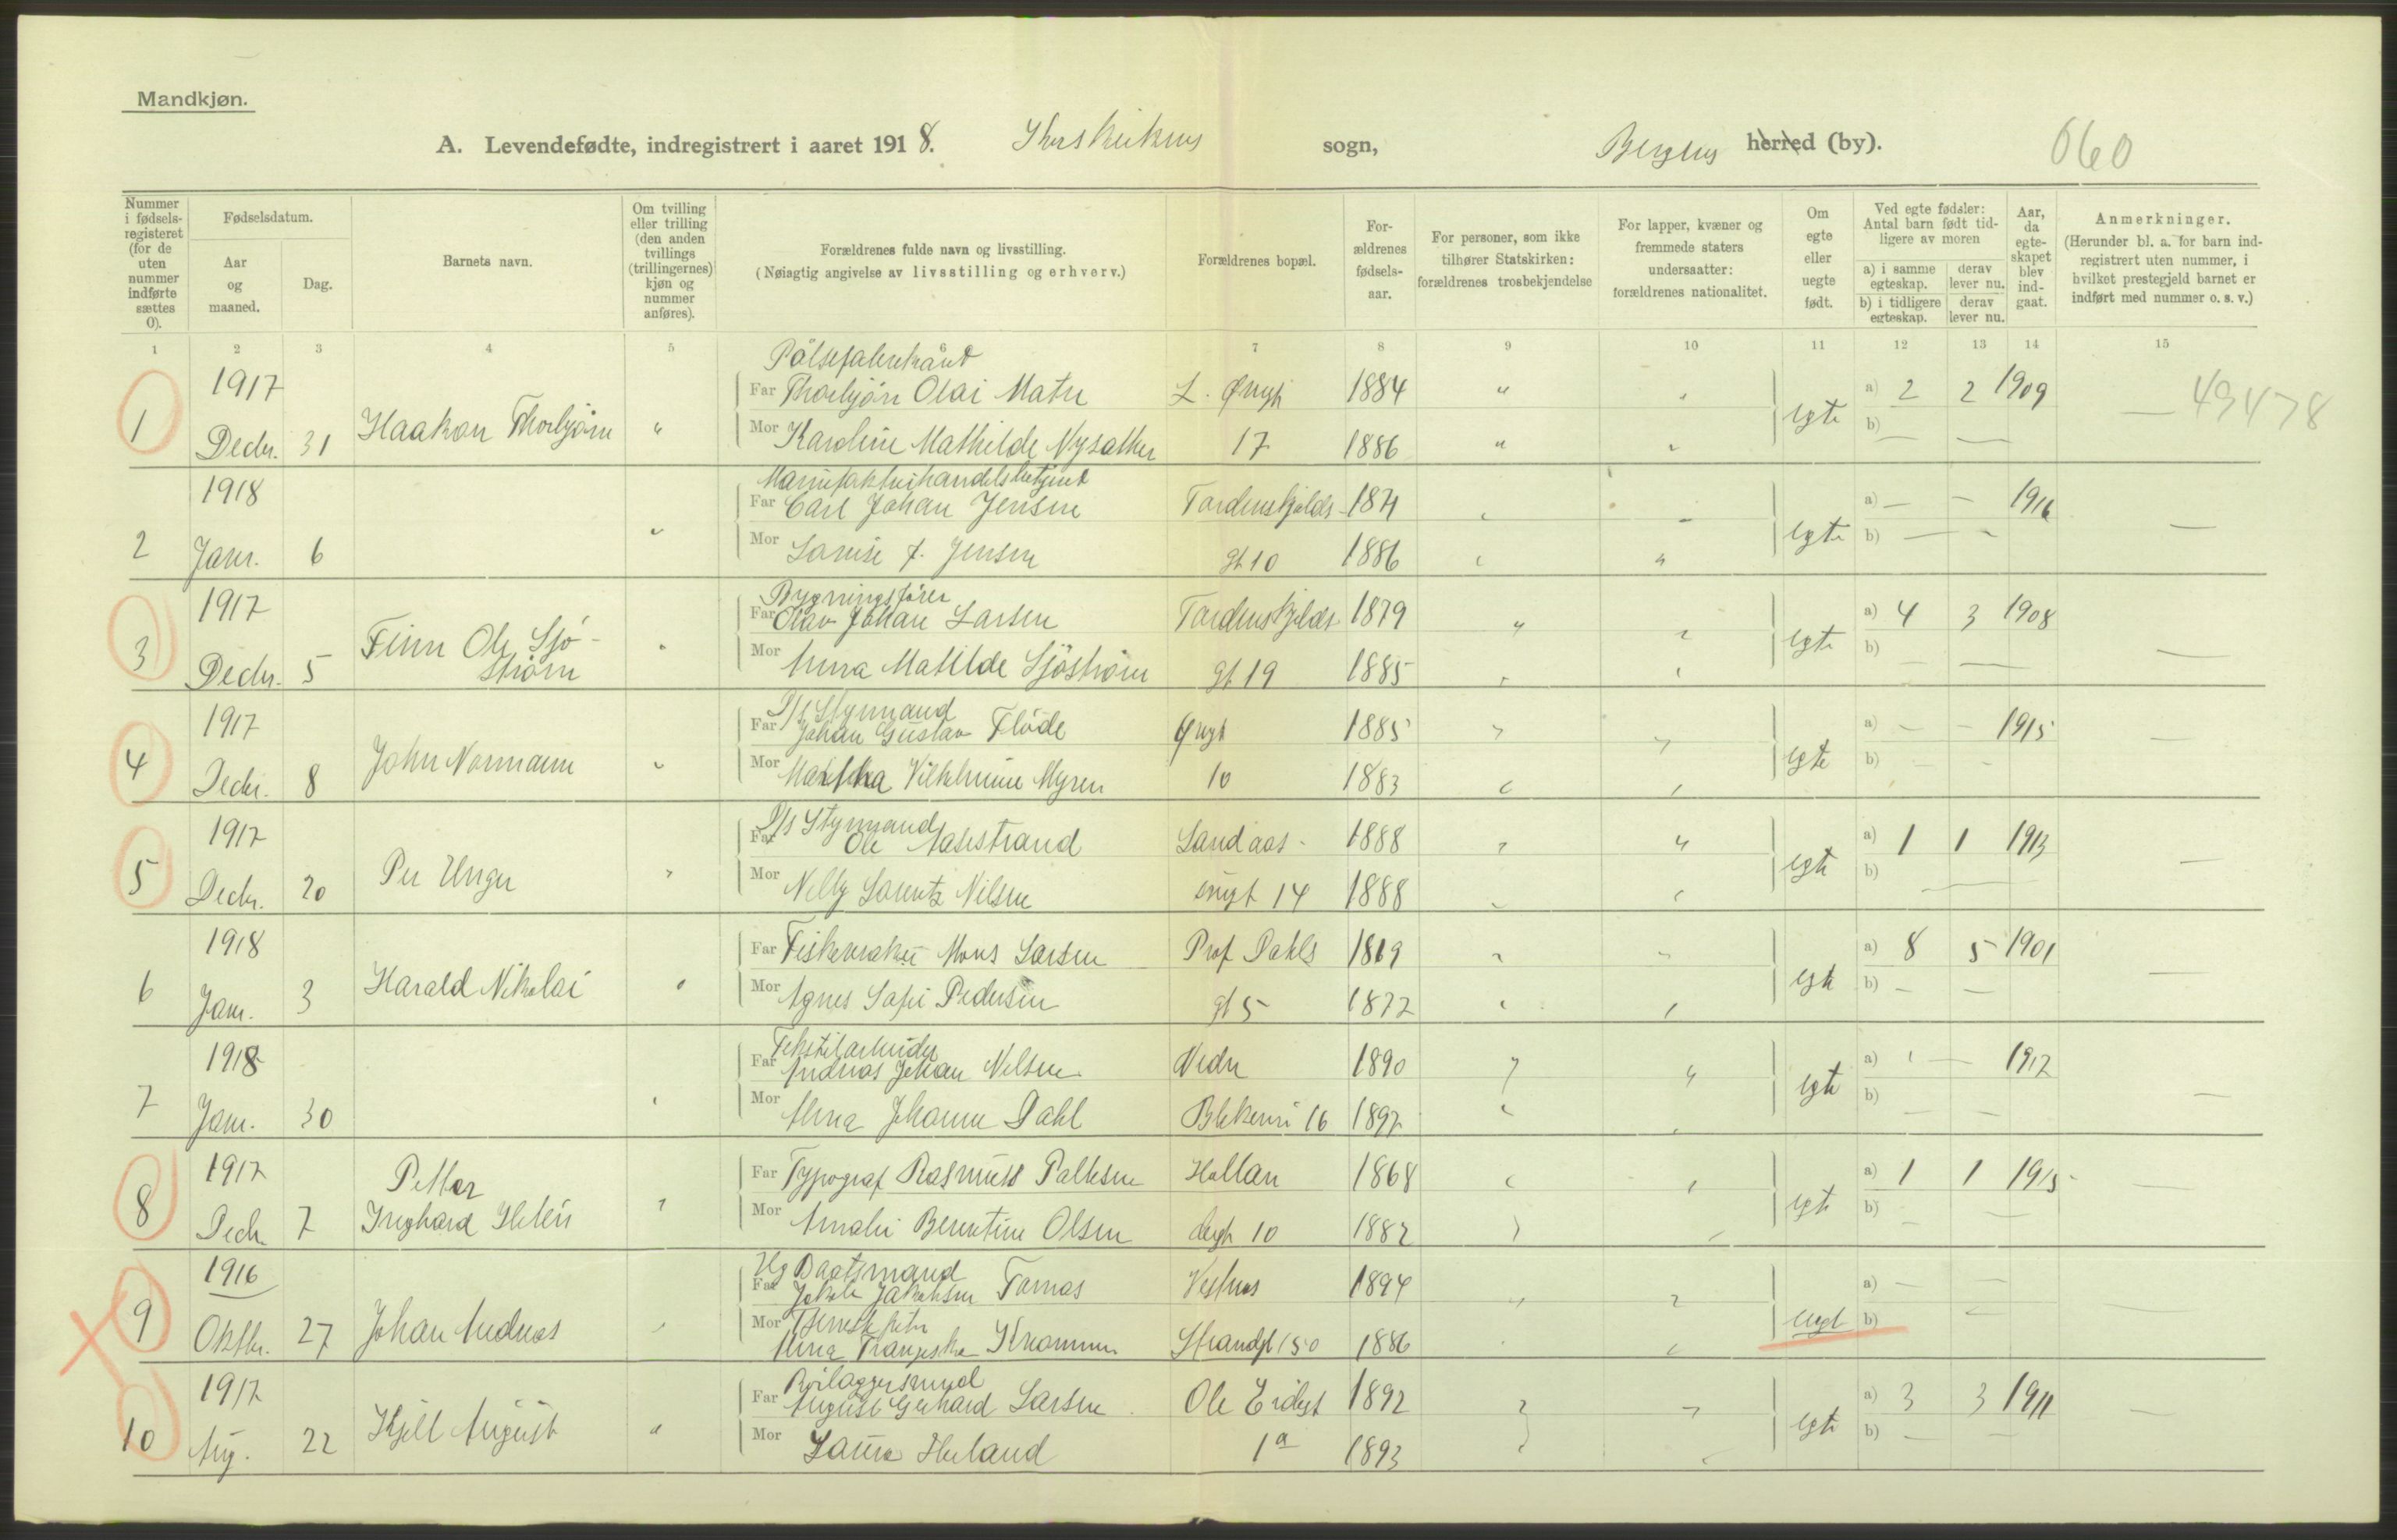 Mandkjøn.
A. Levendefødte, indregistrert i aaret 1918. Korskirkens sogn, Bergens herred (by). 060
Nummer i fødsels-registeret (for de uten nummer indførte sættes 0).
Fødselsdatum.
Aar og maaned.
Dag.
Barnets navn.
Om tvilling eller trilling (den anden tvillings (trillingernes) kjøn og nummer anføres).
Forældrenes fulde navn og livsstilling.
(Nøiagtig angivelse av livsstilling og erhverv.)
Forældrenes bopæl.
For-ældrenes fødsels-aar.
For personer, som ikke tilhører Statskirken: forældrenes trosbekjendelse
For lapper, kvæner og fremmede staters undersaatter: forældrenes nationalitet.
Om egte eller uegte født.
Ved egte fødsler: Antal barn født tid-ligere av moren
a) i samme egteskap. derav lever nu.
b) i tidligere egteskap. derav lever nu.
Aar, da egte-skapet blev ind-gaat.
Anmerkninger.
(Herunder bl. a. for barn ind-registrert uten nummer, i hvilket prestegjeld barnet er indført med nummer o. s. v.)
1 2 3 4 5 6 7 8 9 10 11 12 13 14 15
Pølsefabrikant
1917 Far Thorbjørn Olai Matre L. Øvregt 1884 " " a) 2 2 1909
1 Decbr. 31 Haakon Thorbjørn " Mor Karoline Mathilde Nysæther 17 1886 " " egte b) — — — 49478
Manufakturhandelsbetjent
1918 Far Carl Johan Jensen Tordenskjolds 1871 " " a) — — 1916
2 Janr. 6 " Mor Louise f. Jensen gt 10 1886 " " egte b) — — —
Bygningsfører
1917 Far Olav Johan Larsen Tordenskjolds 1879 " " a) 4 3 1908
3 Decbr. 5 Finn Ole Sjø-strøm " Mor Anna Matilde Sjøstrøm gt 19 1885 " " egte b) — — —
D/s Styrmand
1917 Far Johan Gustav Fløde Øvregt 1885 " " a) — — 1915
4 Decbr. 8 John Normann " Mor Martha Vilhelmine Myren 10 1883 " " egte b) — — —
D/s Styrmand
1917 Far Ole Aasestrand Landaas- 1888 " " a) 1 1 1913
5 Decbr. 20 Per Unger " Mor Nelly Lorentz Nilsen 14 1888 " " egte b) — —
1918 Far Fiskevraker Mons Larsen Prof Dahls 1869 " " a) 8 5 1901
6 Janr. 3 Harald Nikolai " Mor Agnes Sofie Pedersen gt 5 1872 " " egte b) — — —
Tekstilarbeider
1918 Far Andreas Johan Nilsen Nedre 1890 " " a) 1 — 1912
7 Janr. 30 " Mor Anna Johanne Dahl Blekevei 16 1892 " " egte b) — — —
1917 Petter Far Typograf Rasmus Paltesen Hollæn 1868 " " a) 1 1 1915
8 Decbr. 7 Inghard " Mor Amalie Berentine Olsen dergt 10 1882 " " egte b) — — —
Baatsmand
1916 Far Jakob Jakobsen Tornas Vestnes 1894 " " a) — —
Tjenestepike
9 Oktbr. 27 Johan Andreas " Mor Anna Franziska Strandgt 150 1886 " " uegte b) — —
Rørlæggersvend
1917 Far August Gerhard Larsen Ole Irgt 1892 " " a) 3 3 1911
10 Aug. 22 Kjell August " Mor Laura 1a 1893 " " egte b) — — —